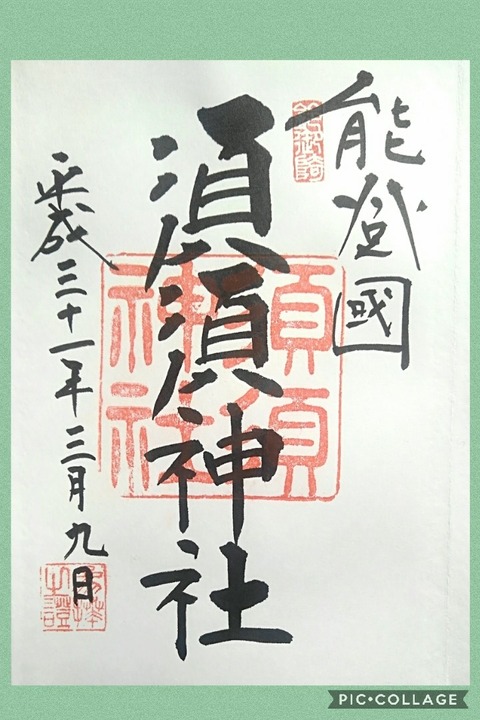 能登國
須須神社
須須
神社
平成三十一年三月九日
PIC•COLLAGE